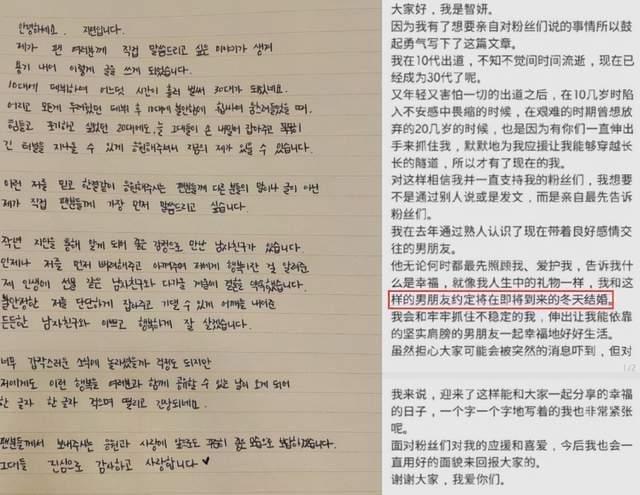 안녕하세요. 지연입니다.
제가 팬 여러분께 직접 말씀드리고 싶은 이야기가 생겨
용기 내어 이렇게 글을 쓰게 되었습니다.
10대에 데뷔하여 어느덧 시간이 흘러 벌써 30대가 됐네요.
어리고 모든게 두려웠던 데뷔 후 10대에 불안감에 휩싸여 움츠러들었을 때,
힘들고 포기하고 싶었던 20대에도, 늘 그대들이 손 내밀어 잡아주고 묵묵히
긴 터널을 지나올 수 있게 응원해주셔서 지금의 제가 있을 수 있습니다.
이런 저를 믿고 한결같이 응원해주시는 팬분들께 다른 분들의 말이나 글이 아닌
제가 직접 팬분들께 가장 먼저 말씀드리고 싶습니다.
작년 지인을 통해 알게 되어 좋은 감정으로 만난 남자친구가 있습니다.
언제나 저를 먼저 배려해주고 아껴주며 저에게 행복이란 걸 알려준
제 인생에 선물 같은 남자친구와 다가올 겨울에 결혼을 약속했습니다.
불안정한 저를 단단하게 잡아주고 기댈 수 있게 어깨를 내어준
든든한 남자친구와 이쁘고 행복하게 잘 살겠습니다.
너무 갑작스러운 소식에 놀라셨을까 걱정도 되지만
저에게도 이런 행복을 여러분과 함께 공유할 수 있는 날이 오게 되어
한 글자 한 글자 적으며 떨리고 긴장되네요.
팬분들께서 보내주시는 응원과 사랑에 앞으로도 꾸준히 좋은 모습으로 보답하겠습니다.
그대들 진심으로 감사하고 사랑합니다♥
大家好，我是智妍。
因为我有了想要亲自对粉丝们说的事情所以鼓
起勇气写下了这篇文章。
我在10代出道，不知不觉间时间流逝，现在已
经成为30代了呢。
又年轻又害怕一切的出道之后，在10几岁时陷
入不安感中畏缩的时候，在艰难的时期曾想放
弃的20几岁的时候，也是因为有你们一直伸出
手来抓住我，默默地为我应援让我能够穿越长
长的隧道，所以才有了现在的我。
对这样相信我并一直支持我的粉丝们，我想要
不是通过别人说或是发文，而是亲自最先告诉
粉丝们。
我在去年通过熟人认识了现在带着良好感情交
往的男朋友。
他无论何时都最先照顾我、爱护我，告诉我什
么是幸福，就像我人生中的礼物一样，我和这
样的男朋友约定将在即将到来的冬天结婚。
我会和牢牢抓住不稳定的我，伸出让我能依靠
的坚实肩膀的男朋友一起幸福地好好生活。
虽然担心大家可能会被突然的消息吓到，但对
1/2
我来说，迎来了这样能和大家一起分享的幸福
的日子，一个字一个字地写着的我也非常紧张
呢。
面对粉丝们对我的应援和喜爱，今后我也会一
直用好的面貌来回报大家的。
谢谢大家，我爱你们。